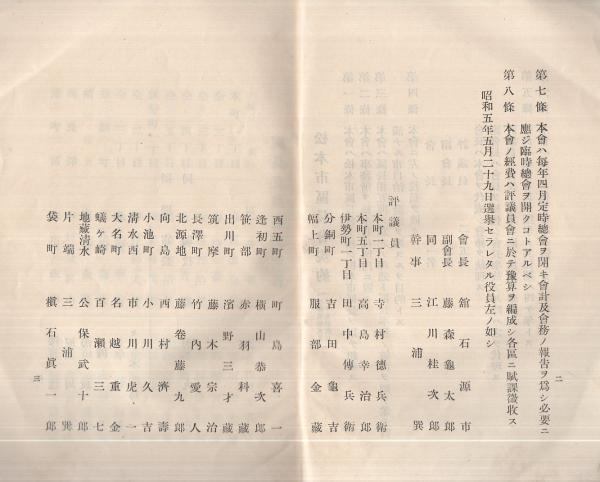 第七條 本會ハ每年四月定時總會ヲ開キ會計及會務ノ報吿ヲ爲シ必要ニ
應ジ臨時總會ヲ開クコトアルベシ
第八條 本會ノ經費ハ評議員會ニ於テ豫算ヲ編成シ各區ニ賦課徵收ス
昭和五年五月二十九日選擧セラレタル役員左ノ如シ
會長 舘石源市
副會長 藤森龜太郎
同 江川桂次郎
幹事 三浦巽
評議員
本町一丁目 寺村德兵衞
本町五丁目 高島幸治郎
伊勢町一丁目 田中傳兵衞
分銅町 吉田龜吉
幅上町 服部金藏
二
西五町 町島喜一
逢初町 橫山恭次郎
笹部 赤羽料藏
出川町 濱野三才藏
筑摩 藤木宗治
長澤町 竹內愛人
北源地 藤卷藤九郎
向島 西村濟壽
小池町 小川久吉
淸水西 市川虎一
大名町 名越重金
蟻ヶ崎 百瀨三七
地藏淸水 公保武十郎
片端 三浦巽
袋町 橫石眞一郎
三
松本市區